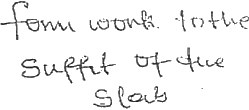 form work to the
suffit of the
slab